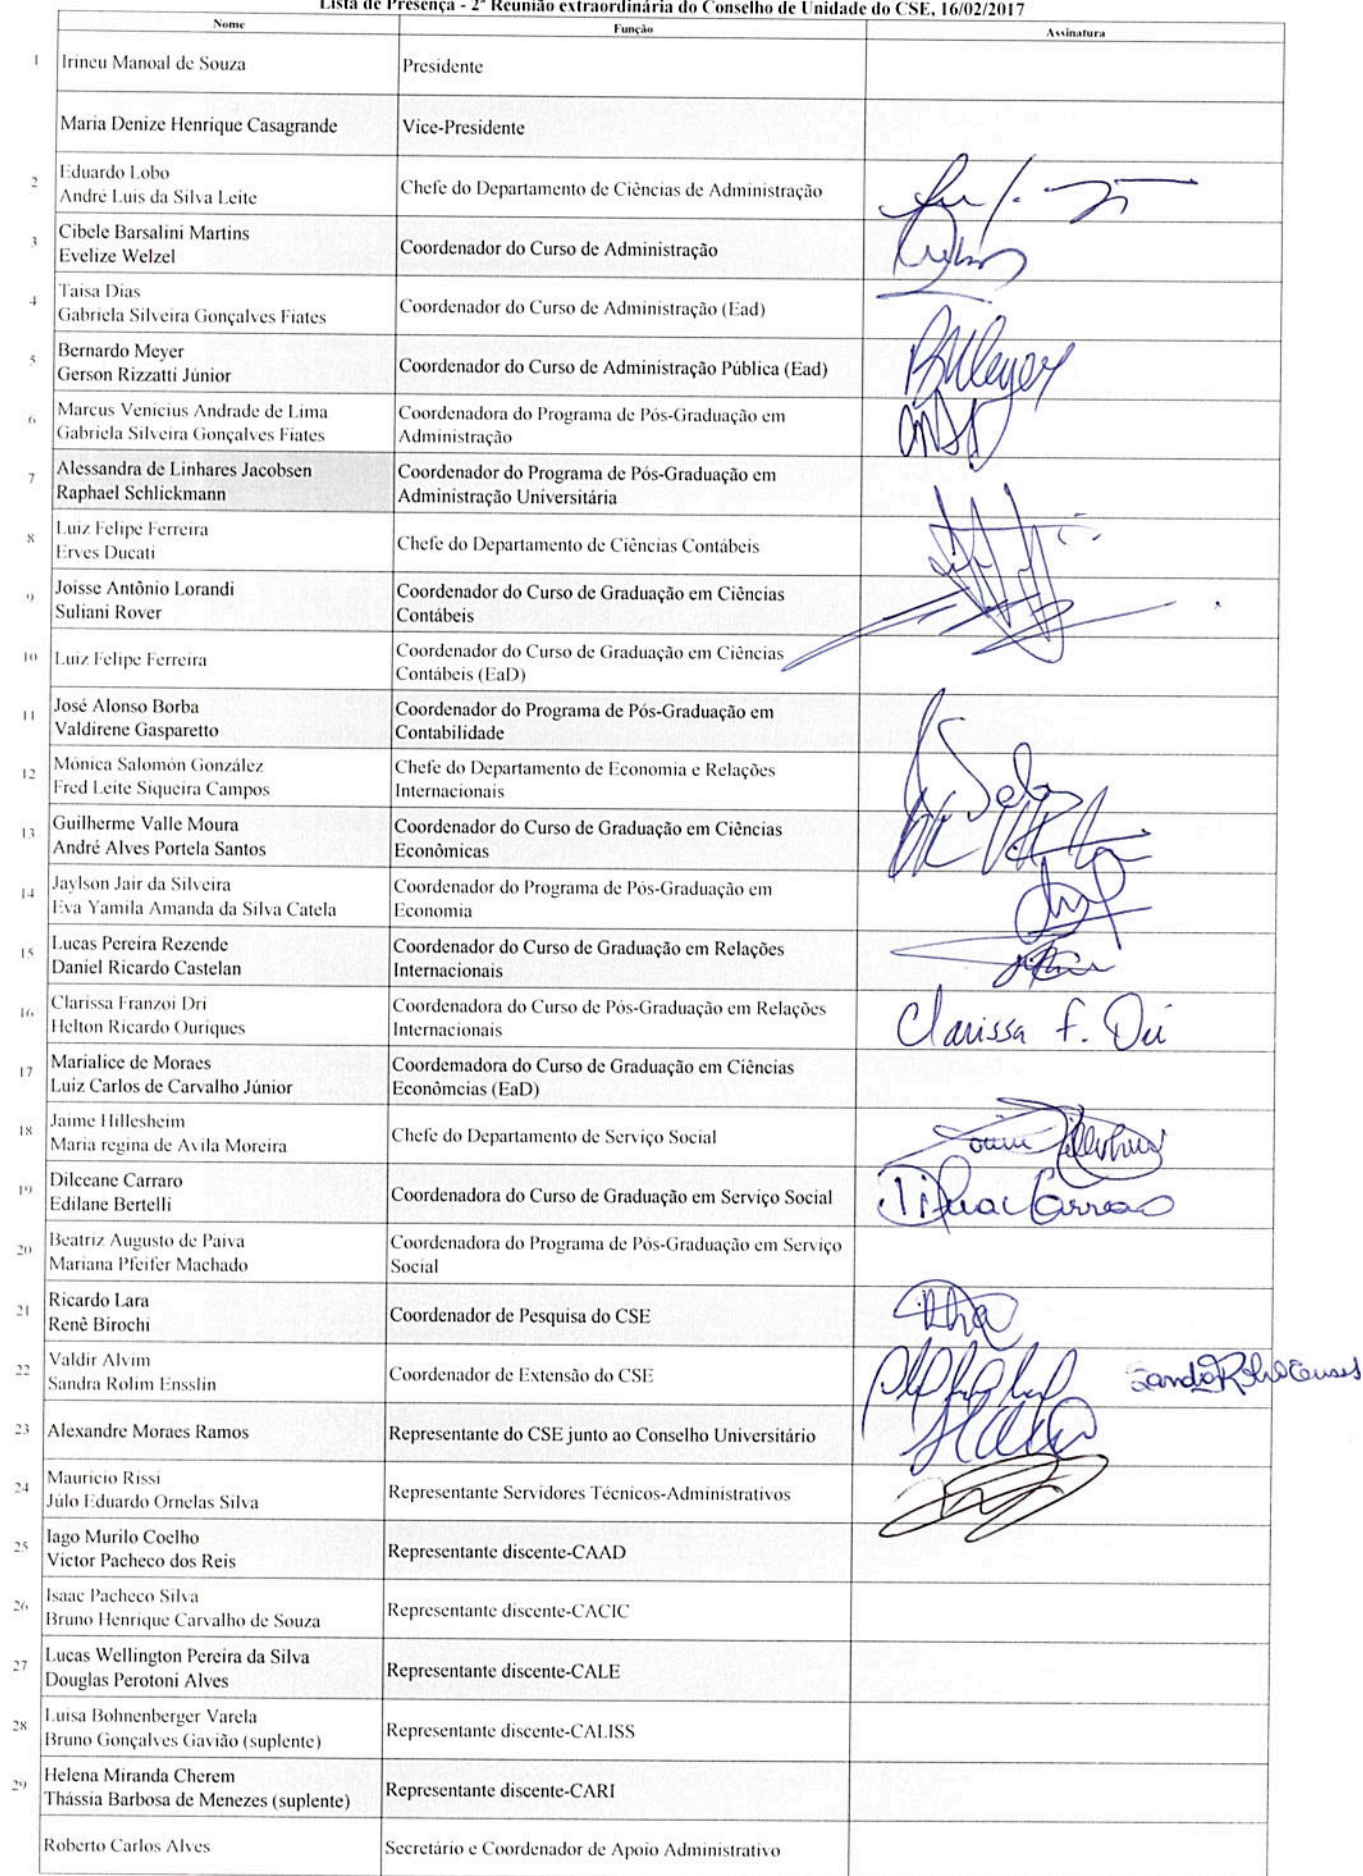 Lista de Presença - 2ª Reunião extraordinária do Conselho de Unidade do CSE, 16/02/2017
Nome Função Assinatura
1 Irineu Manoal de Souza Presidente
Maria Denize Henrique Casagrande Vice-Presidente
2 Eduardo Lobo
André Luis da Silva Leite Chefe do Departamento de Ciências de Administração
3 Cibele Barsalini Martins
Evelize Welzel Coordenador do Curso de Administração
4 Taisa Dias
Gabriela Silveira Gonçalves Fiates Coordenador do Curso de Administração (Ead)
5 Bernardo Meyer
Gerson Rizzatti Júnior Coordenador do Curso de Administração Pública (Ead) BMeyer
6 Marcus Venicius Andrade de Lima Coordenadora do Programa de Pós-Graduação em
Gabriela Silveira Gonçalves Fiates Administração
7 Alessandra de Linhares Jacobsen Coordenador do Programa de Pós-Graduação em
Raphael Schlickmann Administração Universitária
8 Luiz Felipe Ferreira
Erves Ducati Chefe do Departamento de Ciências Contábeis
9 Joisse Antônio Lorandi Coordenador do Curso de Graduação em Ciências
Suliani Rover Contábeis
10 Luiz Felipe Ferreira Coordenador do Curso de Graduação em Ciências
Contábeis (EaD)
11 José Alonso Borba Coordenador do Programa de Pós-Graduação em
Valdirene Gasparetto Contabilidade
12 Mónica Salomón González Chefe do Departamento de Economia e Relações
Fred Leite Siqueira Campos Internacionais
13 Guilherme Valle Moura Coordenador do Curso de Graduação em Ciências
André Alves Portela Santos Econômicas
14 Jaylson Jair da Silveira Coordenador do Programa de Pós-Graduação em
Eva Yamila Amanda da Silva Catela Economia
15 Lucas Pereira Rezende Coordenador do Curso de Graduação em Relações
Daniel Ricardo Castelan Internacionais
16 Clarissa Franzoi Dri Coordenadora do Curso de Pós-Graduação em Relações
Helton Ricardo Ouriques Internacionais Clarissa F. Dri
17 Marialice de Moraes Coordemadora do Curso de Graduação em Ciências
Luiz Carlos de Carvalho Júnior Econômcias (EaD)
18 Jaime Hillesheim
Maria regina de Avila Moreira Chefe do Departamento de Serviço Social
19 Dilceane Carraro
Edilane Bertelli Coordenadora do Curso de Graduação em Serviço Social
20 Beatriz Augusto de Paiva Coordenadora do Programa de Pós-Graduação em Serviço
Mariana Pfeifer Machado Social
21 Ricardo Lara
Renê Birochi Coordenador de Pesquisa do CSE
22 Valdir Alvim
Sandra Rolim Ensslin Coordenador de Extensão do CSE
23 Alexandre Moraes Ramos Representante do CSE junto ao Conselho Universitário
24 Mauricio Rissi
Júlo Eduardo Ornelas Silva Representante Servidores Técnicos-Administrativos
25 Iago Murilo Coelho
Victor Pacheco dos Reis Representante discente-CAAD
26 Isaac Pacheco Silva
Bruno Henrique Carvalho de Souza Representante discente-CACIC
27 Lucas Wellington Pereira da Silva
Douglas Perotoni Alves Representante discente-CALE
28 Luisa Bohnenberger Varela
Bruno Gonçalves Gavião (suplente) Representante discente-CALISS
29 Helena Miranda Cherem
Thássia Barbosa de Menezes (suplente) Representante discente-CARI
Roberto Carlos Alves Secretário e Coordenador de Apoio Administrativo